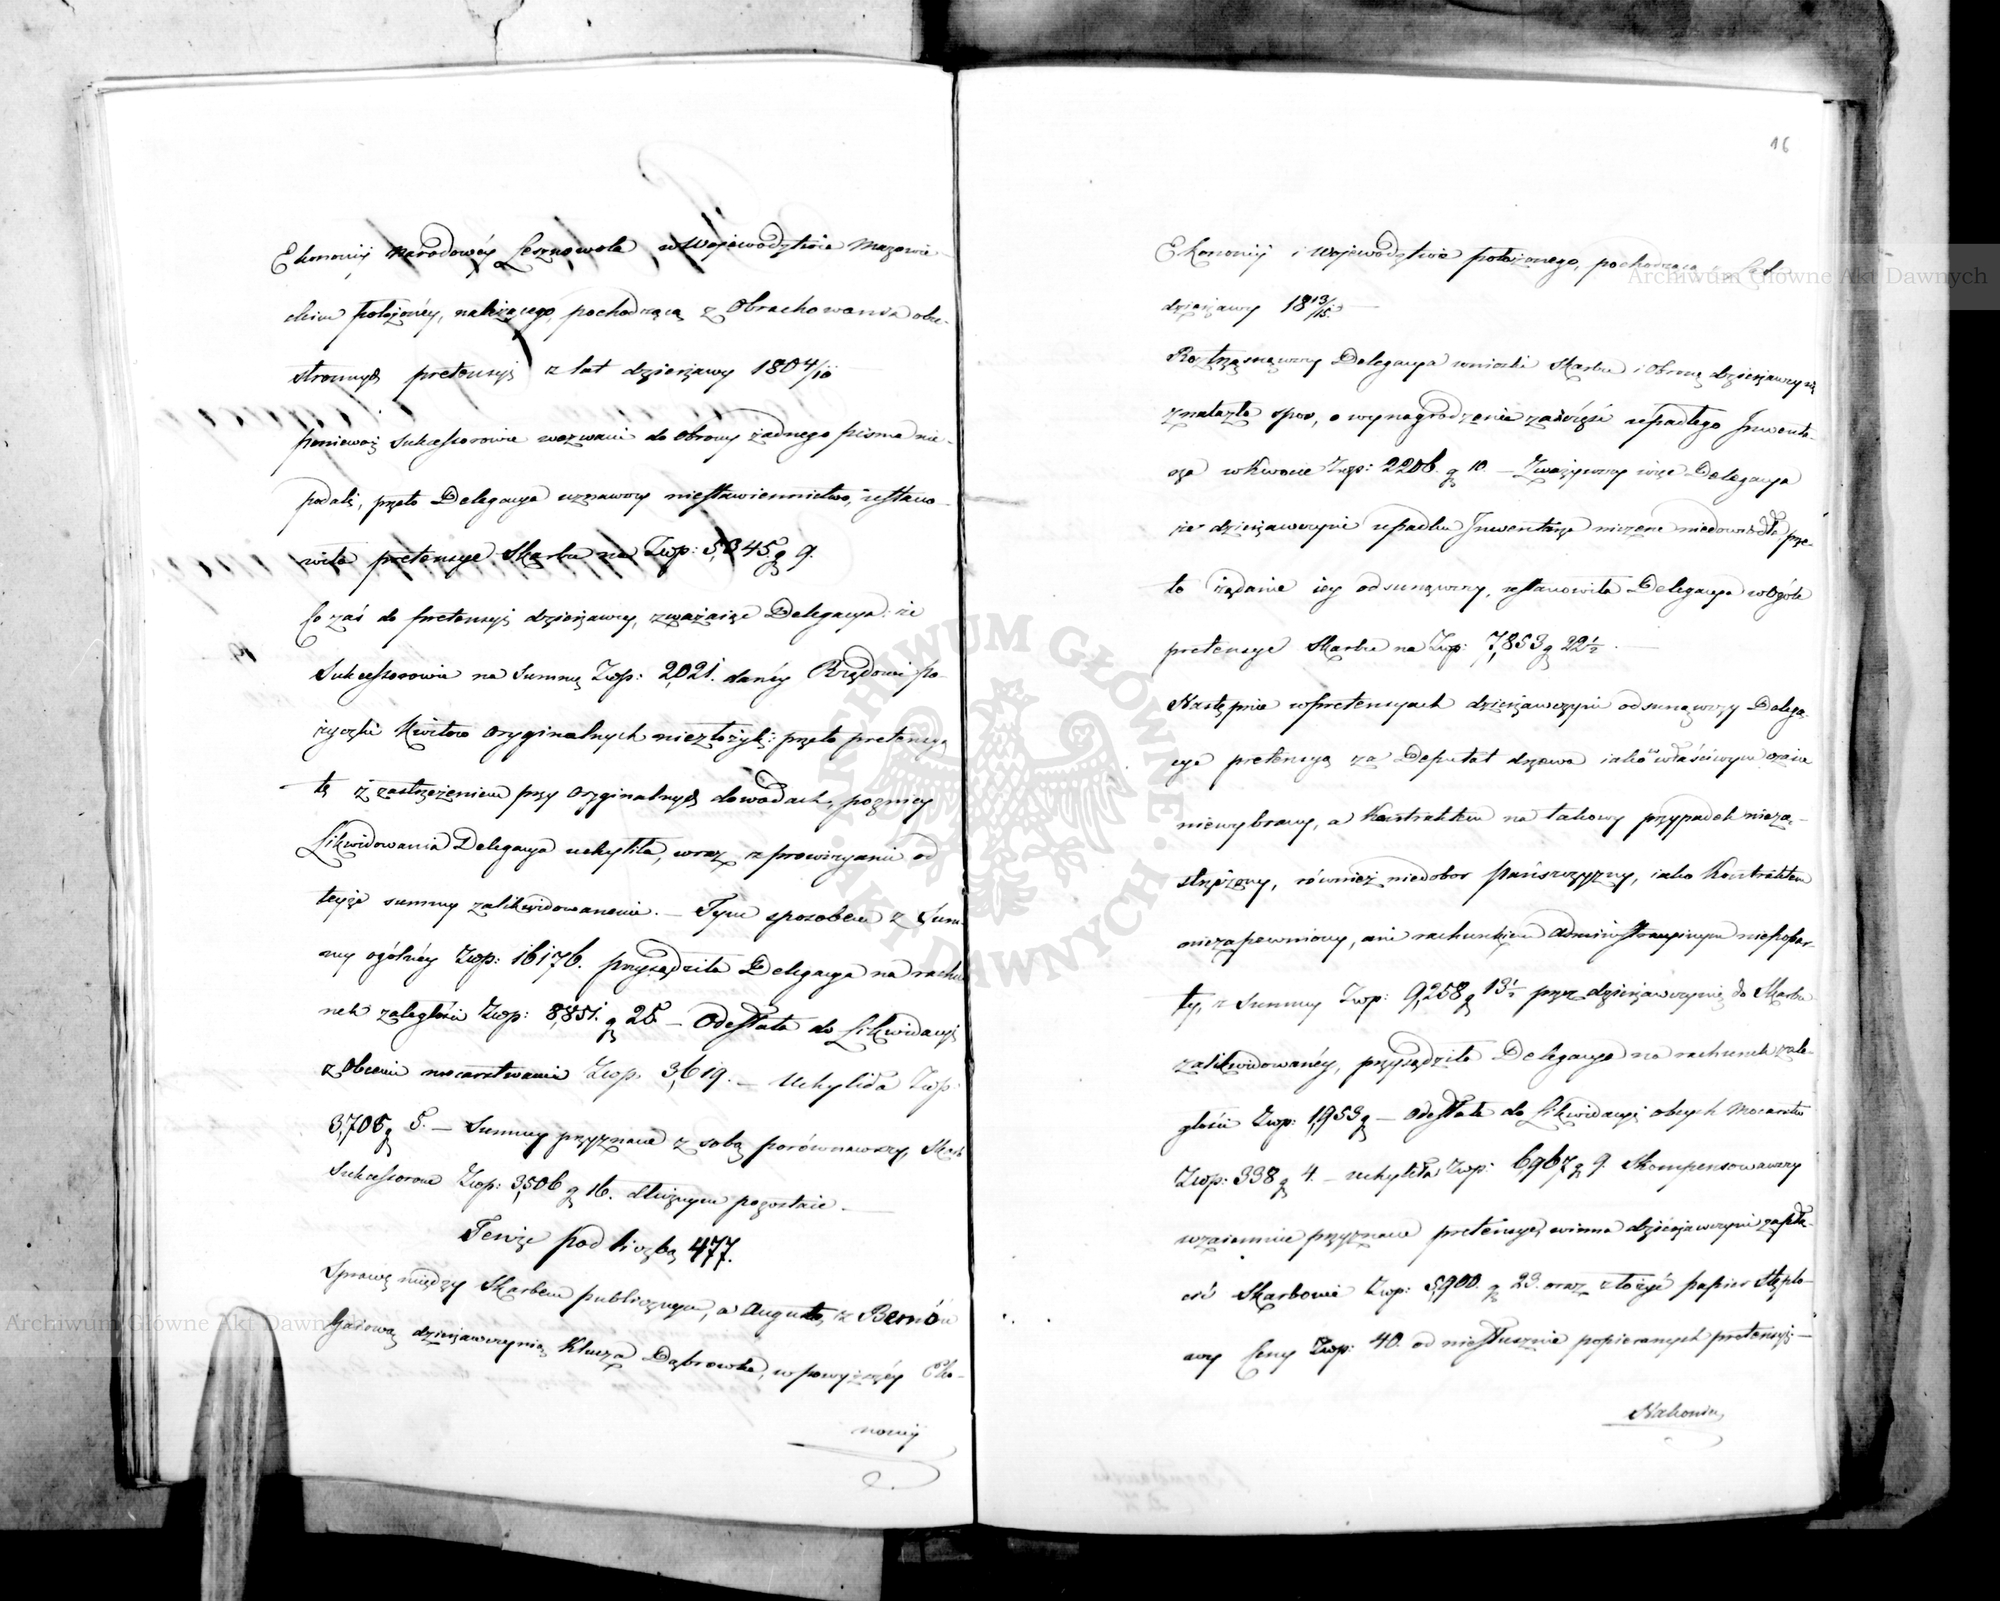 Ekonomij Narodowéy Lesznowola w Wojewodztwie Mazowie-
ckim położonéy, należącego, pochodzącą z Obrachowania obu-
stronnych pretensyi z lat dzierżawy 1804/10
ponieważ Sukcessorowie wezwani do obrony żadnego pisma nie-
podali, przeto Delegacya uznawszy niestawiennictwo, ustano-
wiła pretensye Skarbu na Złłp: 5,345 g 9.
Co zaś do pretensyi dzierżawcy, zważaiąc Delegacya: że
Sukcessorowie na Summę Złłp: 2,021. danéy Rządowi po-
życzki Kwitów oryginalnych niezłożyli: przeto pretensyą
tę z zastrzeżeniem przy oryginalnych dowodach, pozniey
Likwidowania Delegacya uchyliła, wraz z prowizyami od
teyże summy zalikwidowanemi. — Tym sposobem z Sum-
my ogólnéy Złłp: 16176. przysądziła Delegacya na rachu
nek zaległości Złłp: 8,851. g 25. — Odesłała do Likwidacyi
z Obcemi mocarstwami Złłp. 3,619. — Uchyliła Złłp:
3,705 g 5. — Summy przyznane z sobą porównawszy, Skarb
Sukcessorom Złłp: 3,506 g 16. dłużnym pozostaie. —
Tenże pod liczbą 477.
Sprawę między Skarbem publicznym, a Augustą, z Bernów
Gaiową dzierżawczynią Klucza Dąbrowka, w powyższéy Eko-
nomij
16
Ekonomij i Wojewodztwie położonego, pochodzącą z
dzierżawy 1813/15. —
Roztrząsnąwszy Delegacya wnioski Skarbu i Obronę dzierżawczyni
znalazła spor, o wynagrodzenie za upadłego Inwenta-
rza w Kwocie Złłp: 2206. g 10. — Zważywszy więc Delegacya
że dzierżawczyni upadku Inwentarza niczem niedowiodła prze-
to żądanie iey odsunąwszy, ustanowiła Delegacya w ogóle
pretensye Skarbu na Złłp: 7,853 g 22½. —
Następnie w pretensyach dzierżawczyni odsunąwszy Delega-
cya pretensyą za Deputat drzewa iako w właściwym czasie
niewybrany, a Kontraktem na takowy przypadek nieza-
strzeżony, również niedobor Pańszczyzny, iako Kontraktem
niezapewniony, ani rachunkiem administracyinym niepopar-
ty, z Summy Złłp: 9,258 g 13½ przez dzierżawczynię do Skarbu
zalikwidowanéy, przysądziła Delegacya na rachunek zale-
głości Złłp: 1,953 g — Odesłała do Likwidacyi obcych Mocarstw
Złłp: 338 g 4. — Uchyliła Złłp: 6,967 g 9. Skompensowawszy
wzaiemnie przyznane pretensye, winna dzierżawczyni zapła-
cić Skarbowi Złłp: 5,900. g 23. oraz złożyć papier stęplo-
wy Ceny Złłp: 40. od niesłusznie popieranych pretensyi —
Nakoniec
Archiwum Główne Akt Dawnych
Archiwum Główne Akt Dawnych
ARCHIWUM GŁÓWNE AKT DAWNYCH